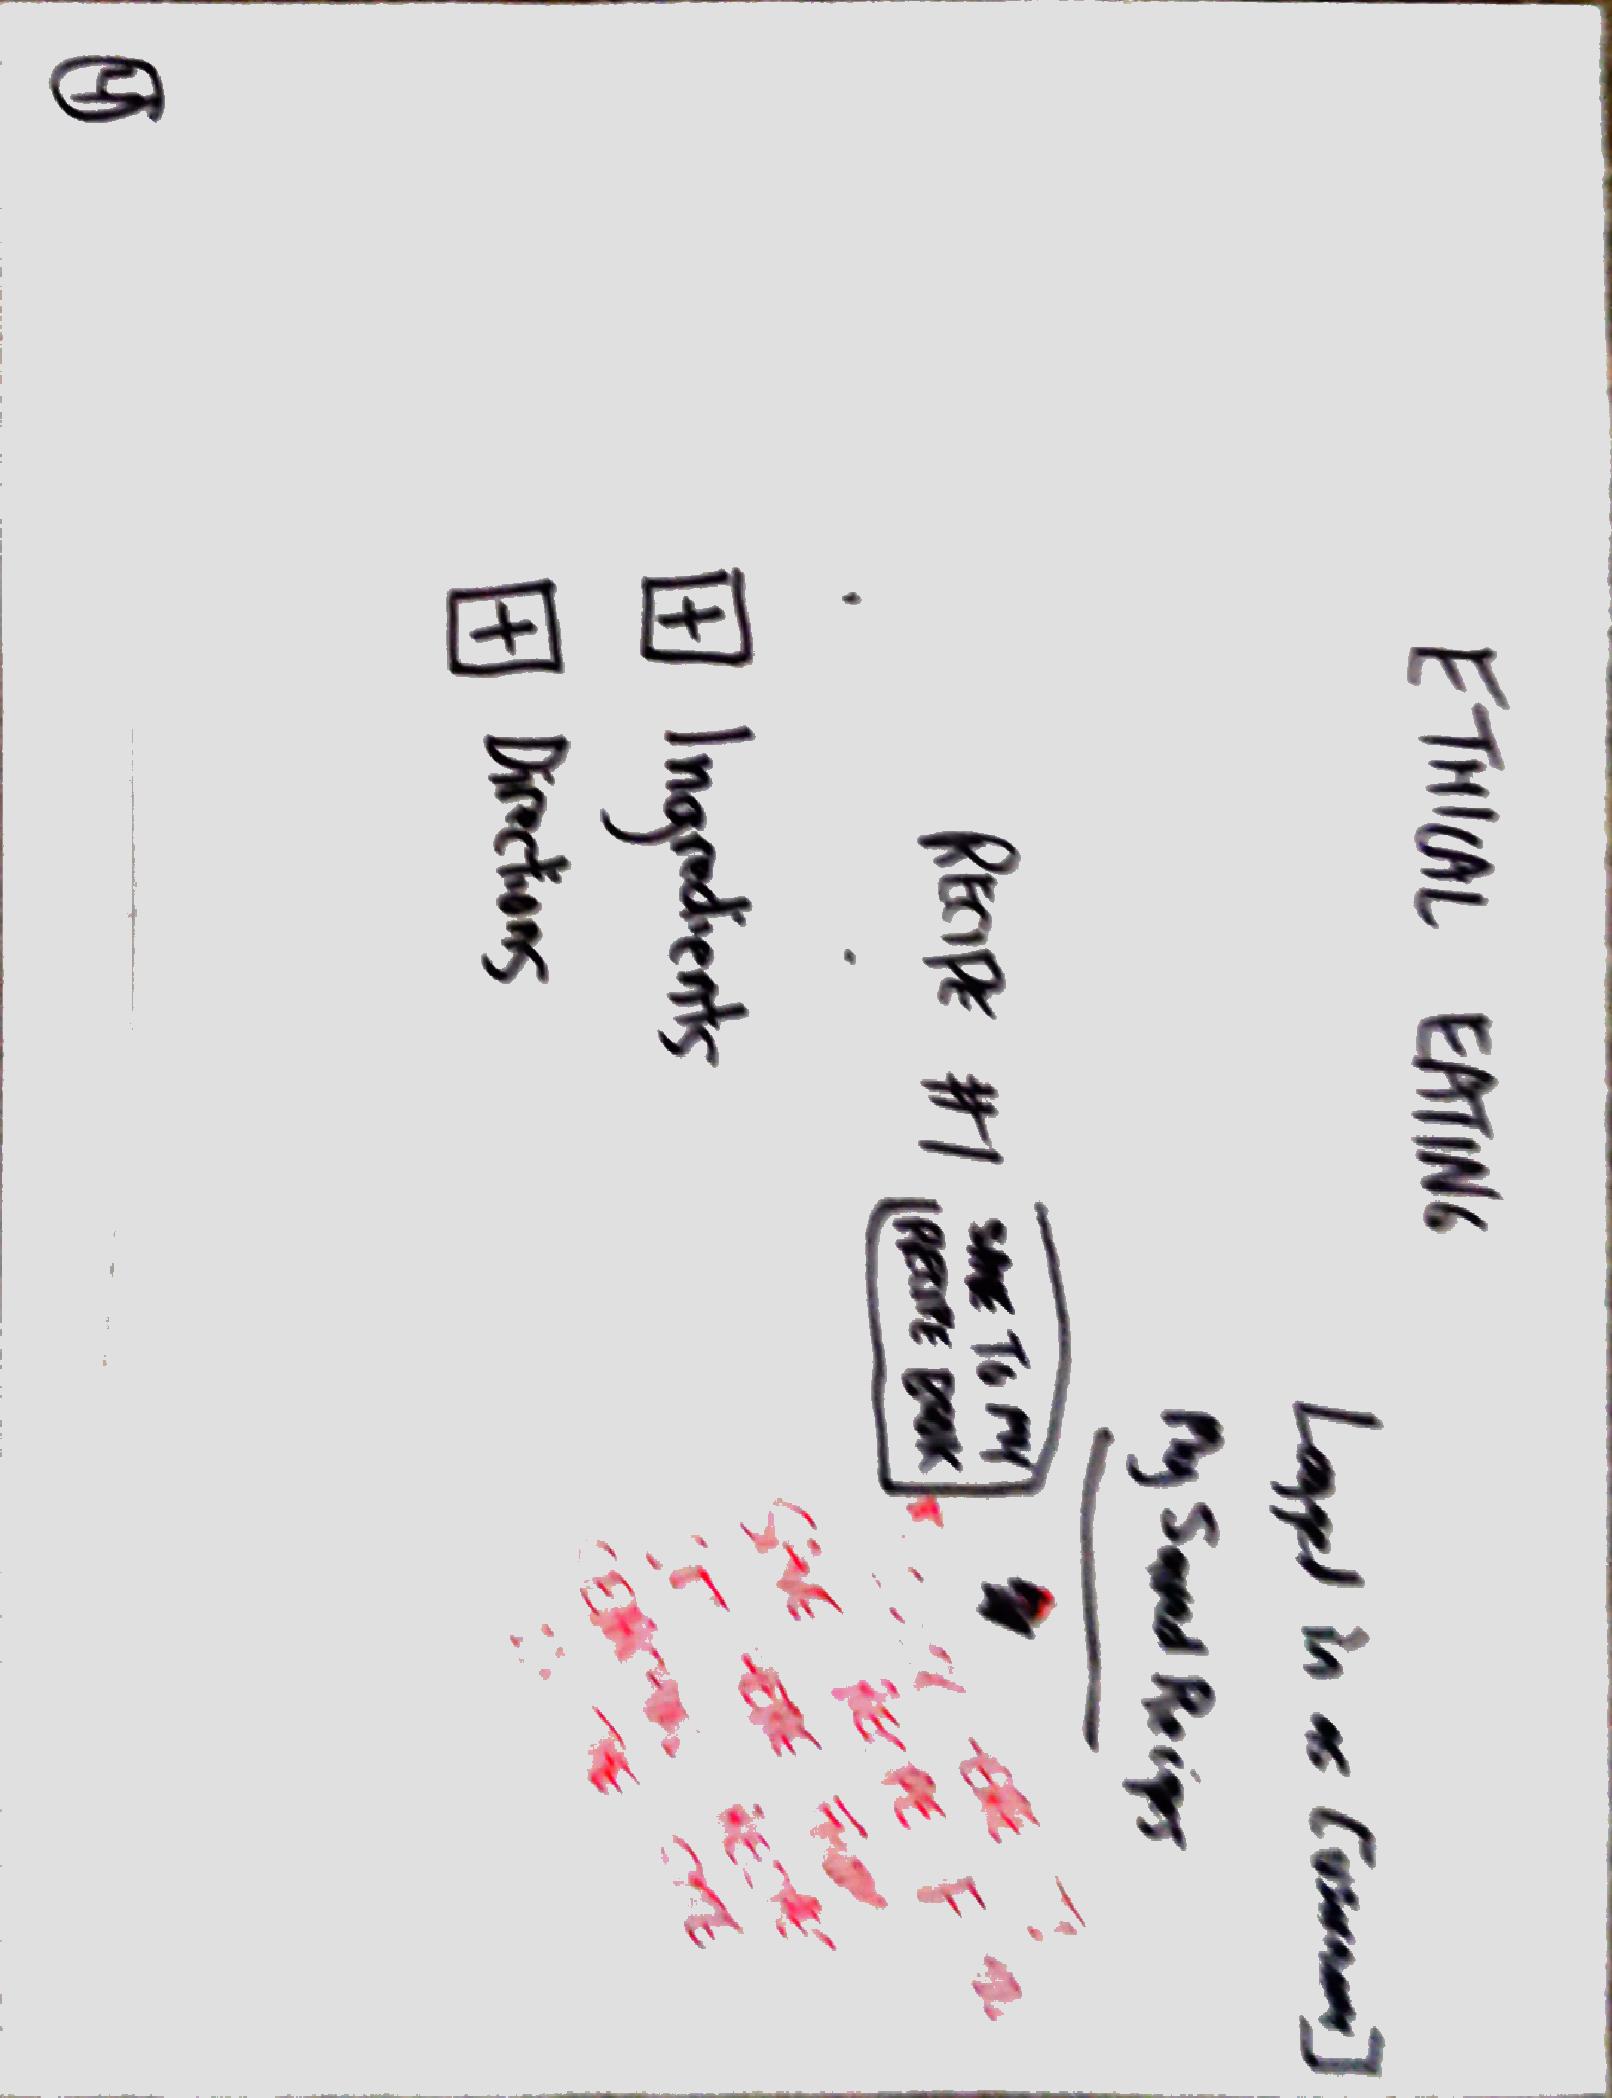 ETHICAL EATING
Logged in as [username]
My Saved Recipes
RECIPE #1
SAVE TO MY
RECIPE BOOK
+ Ingredients
+ Directions
4